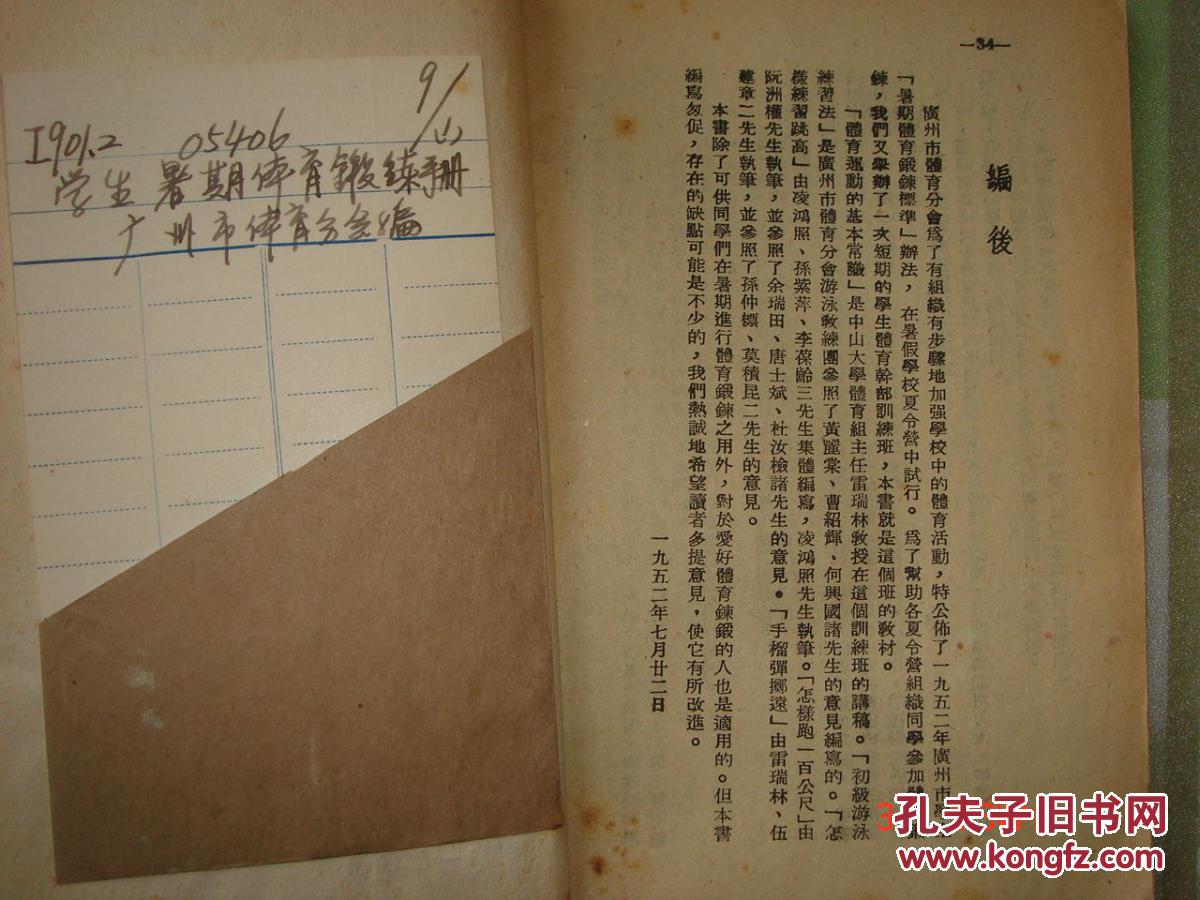 9/山
I901.2 05406
学生暑期体育鍛練手册
广州市体育分会编
—34—
編後
廣州市體育分會爲了有組織有步驟地加强學校中的體育活動，特公佈了一九五二年廣州市
「暑期體育鍛鍊標準」辦法，在暑假學校夏令營中試行。爲了幫助各夏令營組織同學參加體
鍊，我們又舉辦了一次短期的學生體育幹部訓練班，本書就是這個班的教材。
「體育運動的基本常識」是中山大學體育組主任雷瑞林敎授在這個訓練班的講稿。「初級游泳
練習法」是廣州市體育分會游泳敎練團參照了黃麗棠、曹紹輝、何興國諸先生的意見編寫的。「怎
樣練習跳高」由凌鴻照、孫紫萍、李葆齡三先生集體編寫，凌鴻照先生執筆。「怎樣跑一百公尺」由
阮洲權先生執筆，並參照了余瑞田、唐士斌、杜汝檢諸先生的意見。「手榴彈擲遠」由雷瑞林、伍
建章二先生執筆，並參照了孫仲標、莫積昆二先生的意見。
本書除了可供同學們在暑期進行體育鍛鍊之用外，對於愛好體育鍊鍛的人也是適用的。但本書
編寫匆促，存在的缺點可能是不少的，我們熱誠地希望讀者多提意見，使它有所改進。
一九五二年七月廿二日
孔夫子旧书网
www.kongfz.com